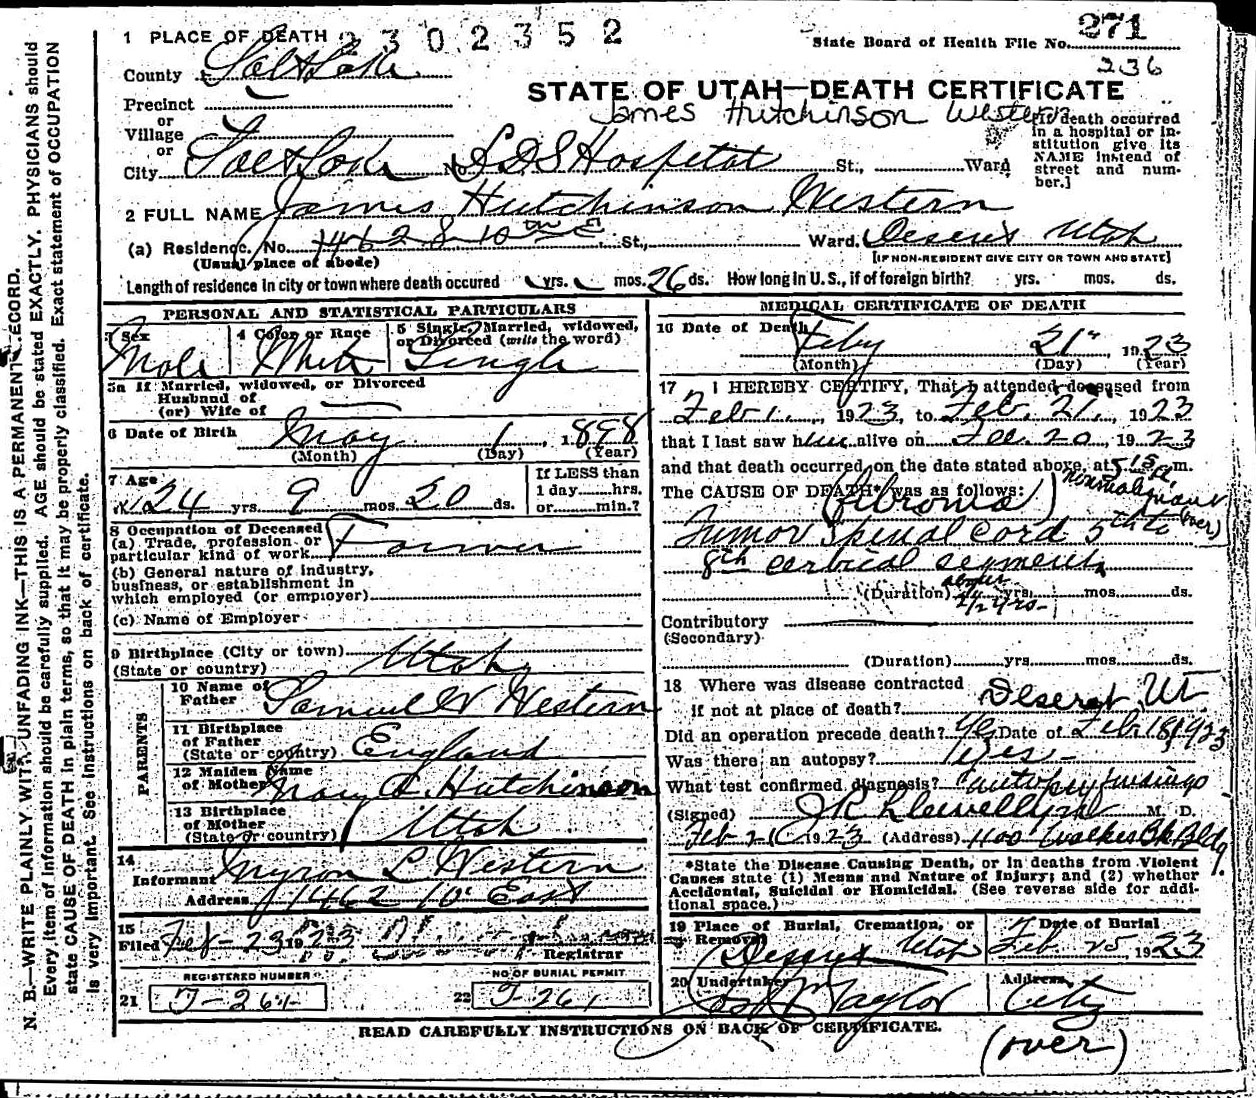 N. B.—WRITE PLAINLY WITH UNFADING INK—THIS IS A PERMANENT RECORD.
Every item of information should be carefully supplied. AGE should be stated EXACTLY. PHYSICIANS should
state CAUSE OF DEATH in plain terms, so that it may be properly classified. Exact statement of OCCUPATION
is very important. See instructions on back of certificate.
1 PLACE OF DEATH 2302352
State Board of Health File No. 271
236
County Salt Lake
STATE OF UTAH—DEATH CERTIFICATE
James Hutchinson Western
Precinct
or
Village
or
City Salt Lake No. L.D.S Hospital St., Ward
[If death occurred
in a hospital or in-
stitution give its
NAME instead of
street and num-
ber.]
2 FULL NAME James Hutchinson Western
(a) Residence, No. 1462 S 10 E St., Ward. Deseret Utah
(Usual place of abode)
[IF NON-RESIDENT GIVE CITY OR TOWN AND STATE]
Length of residence in city or town where death occured yrs. mos. 26 ds. How long in U.S., if of foreign birth? yrs. mos. ds.
PERSONAL AND STATISTICAL PARTICULARS
3 Sex
Male
4 Color or Race
White
5 Single, Married, widowed,
or Divorced (write the word)
Single
5a If Married, widowed, or Divorced
Husband of
(or) Wife of
6 Date of Birth May 1, 1898
(Month) (Day) (Year)
7 Age
24 yrs. 9 mos. 20 ds.
If LESS than
1 day hrs.
or min.?
8 Occupation of Deceased
(a) Trade, profession or
particular kind of work Farmer
(b) General nature of industry,
business, or establishment in
which employed (or employer)
(c) Name of Employer
9 Birthplace (City or town)
(State or country) Utah
PARENTS
10 Name of
Father Samuel W Western
11 Birthplace
of Father
(State or country) England
12 Maiden Name
of Mother Mary A. Hutchinson
13 Birthplace
of Mother
(State or country) Utah
14
Informant Myron L Western
Address 1462 10 East
15
Filed Feb-23 1923
Registrar
REGISTERED NUMBER
21 T-261
NO OF BURIAL PERMIT
22 T-261
MEDICAL CERTIFICATE OF DEATH
16 Date of Death Feby 21", 1923
(Month) (Day) (Year)
17 I HEREBY CERTIFY, That I attended deceased from
Feb 1., 1923, to Feb. 21, 1923
that I last saw him alive on Feb. 20, 1923
and that death occurred on the date stated above, at 515 a.m.
The CAUSE OF DEATH* was as follows:
(fibroma) nonmalignant (over)
Tumor Spinal Cord 5th to
8th cerbical segment
(Duration) about yrs. mos. ds.
2 1/2 yrs-
Contributory
(Secondary)
(Duration) yrs. mos. ds.
18 Where was disease contracted
if not at place of death? Deseret, Ut.
Did an operation precede death? Yes Date of Feb. 18, 1923
Was there an autopsy? Yes-
What test confirmed diagnosis? autopsy findings
(Signed) J R Llewellyn M. D.
Feb 21 1923 (Address) 1100 Walker Bk Bldg.
*State the Disease Causing Death, or in deaths from Violent
Causes state (1) Means and Nature of Injury; and (2) whether
Accidental, Suicidal or Homicidal. (See reverse side for addi-
tional space.)
19 Place of Burial, Cremation, or
Removal
Deseret Utah
Date of Burial
Feb 25, 1923
20 Undertaker
Taylor
Address
City
READ CAREFULLY INSTRUCTIONS ON BACK OF CERTIFICATE.
(over)